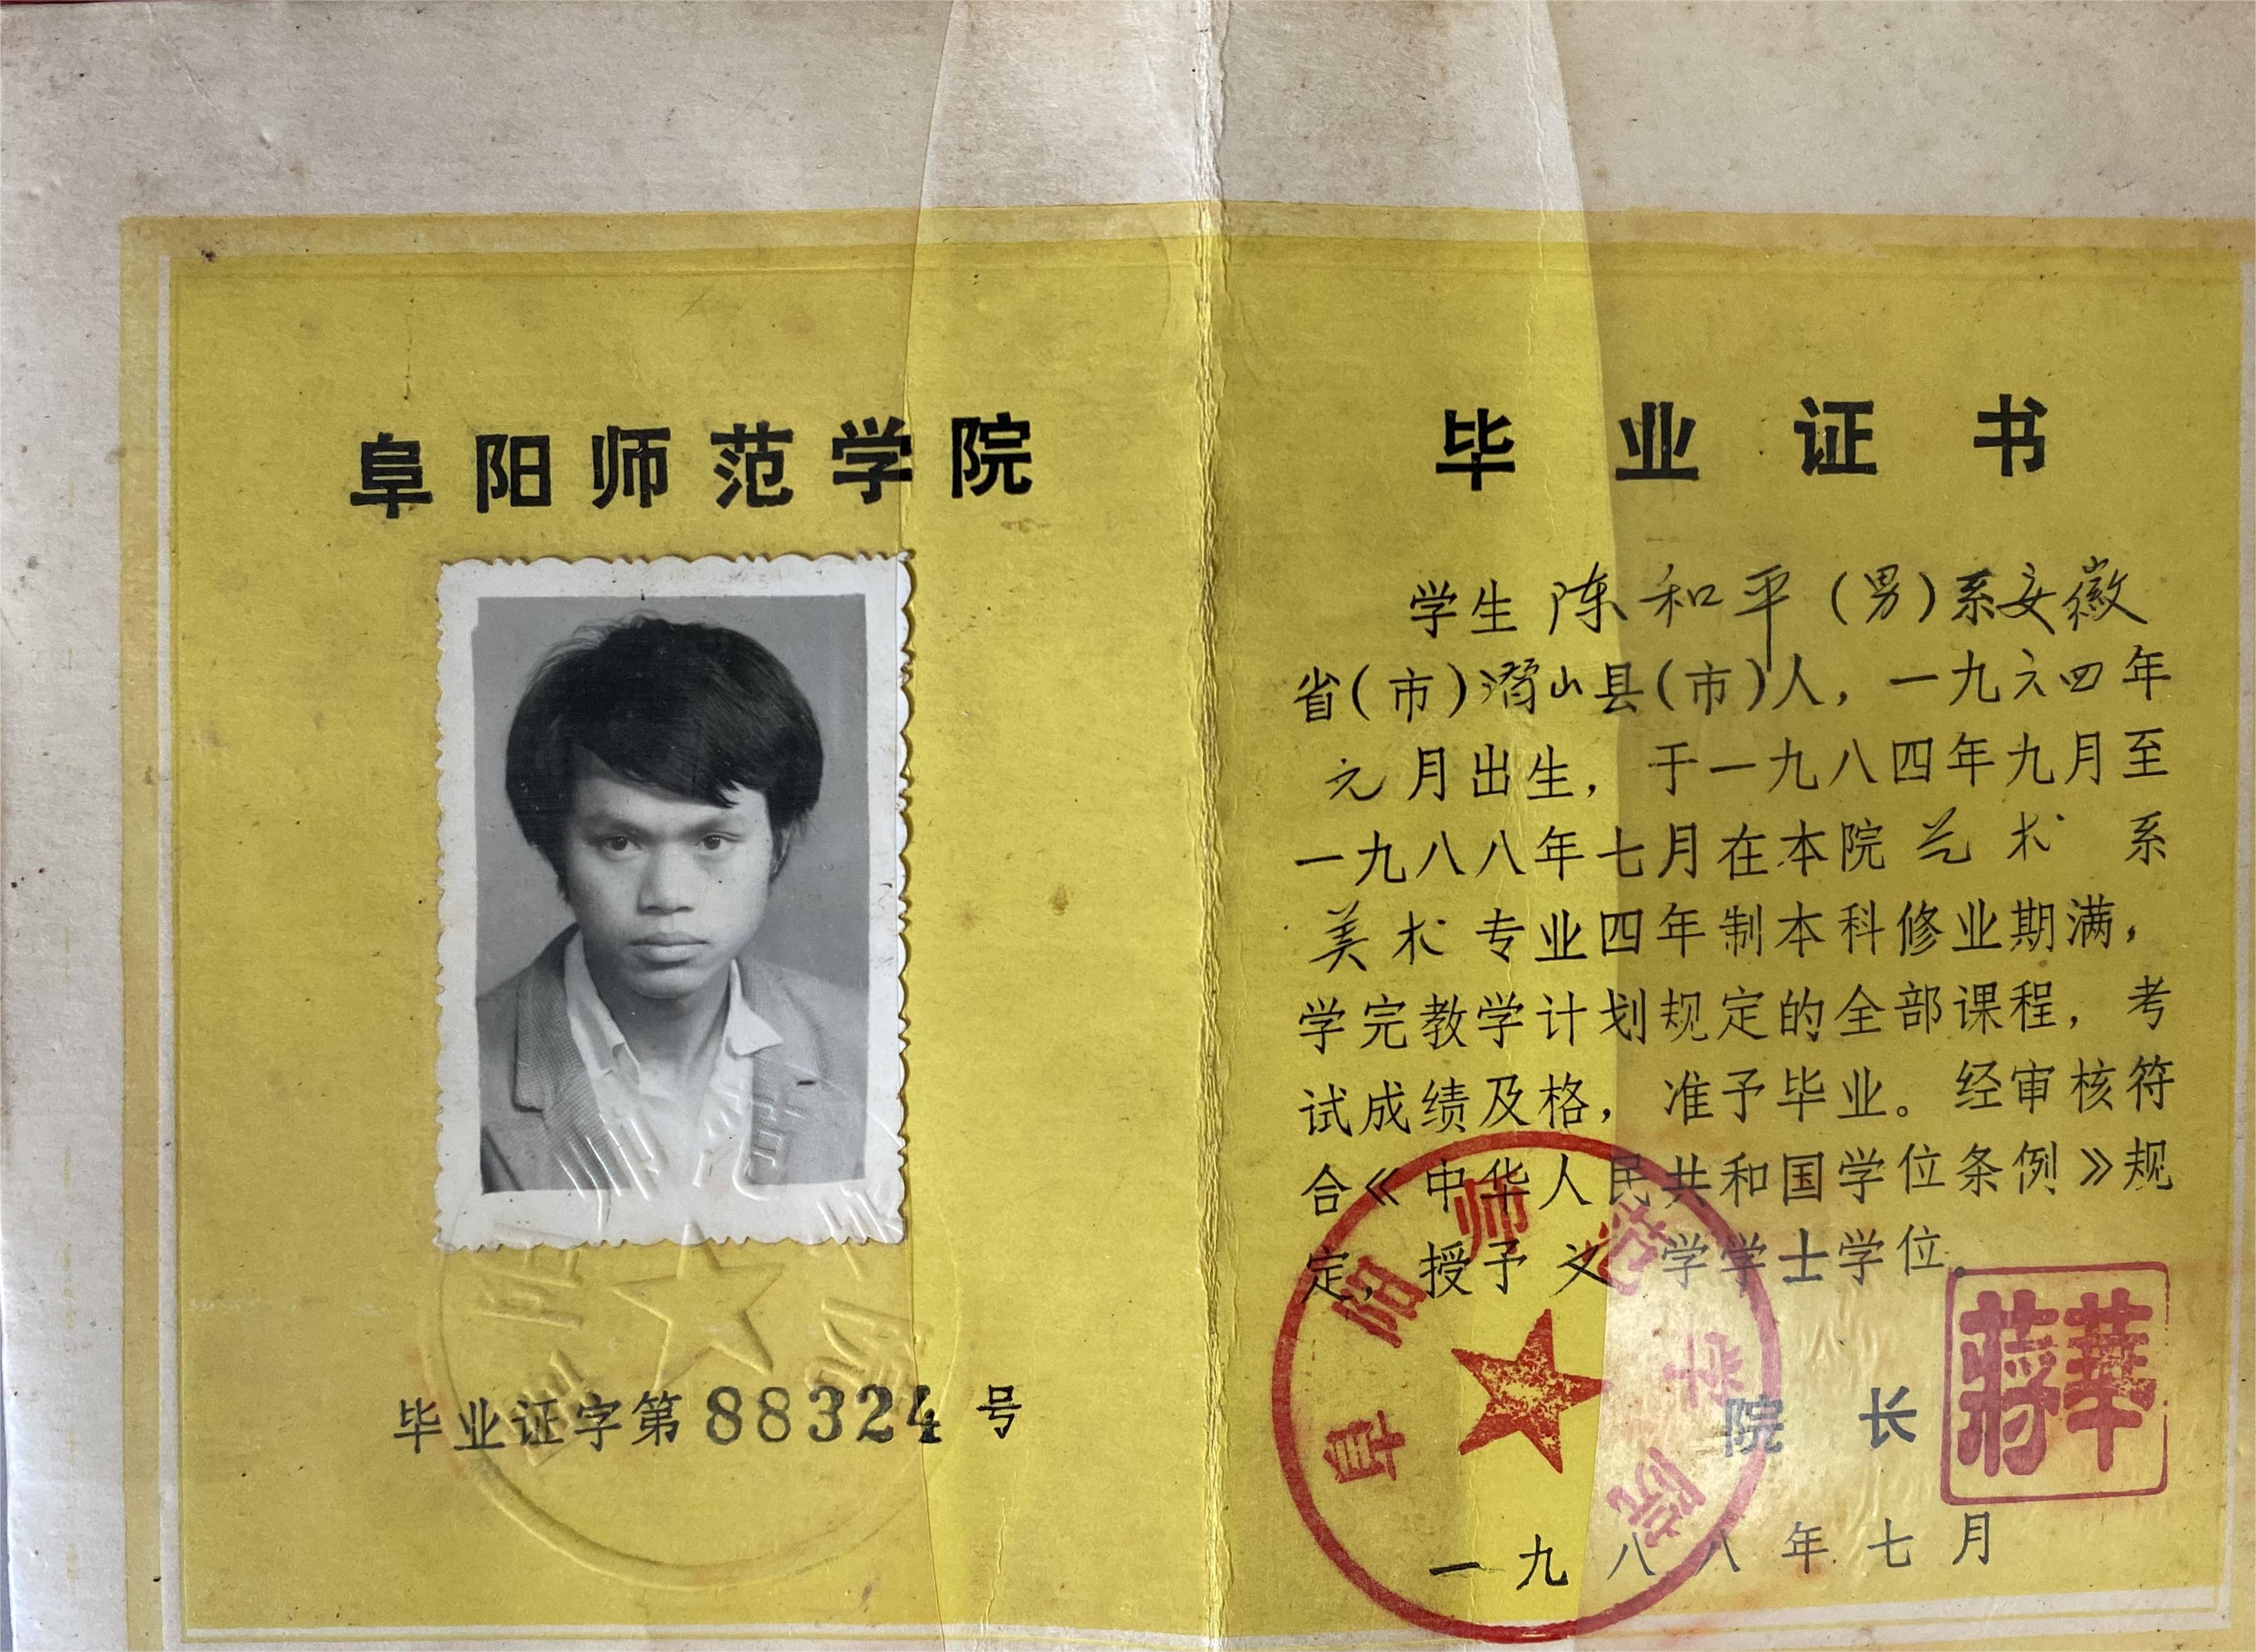 阜阳师范学院
毕业证字第88324号
毕业证书
学生陈和平(男)系安徽
省(市)潛山县(市)人,一九六四年
元月出生,于一九八四年九月至
一九八八年七月在本院艺术系
美术专业四年制本科修业期满,
学完教学计划规定的全部课程,考
试成绩及格,准予毕业。经审核符
合《中华人民共和国学位条例》规
定,授予文学学士学位。
院长
蔣華
一九八八年七月
阜阳师范学院
阜阳师范学院